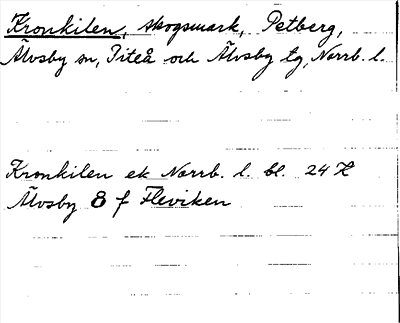 Kronkilen, skogsmark, Petberg,
Älvsby sn, Piteå och Älvsby tg, Norrb. l.
Kronkilen ek Norrb. l. bl. 24 H
Älvsby 8 f Fleviken